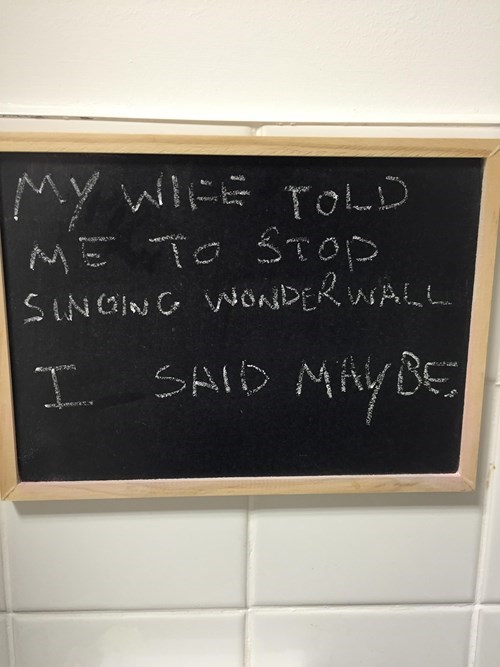 MY WIFE TOLD
ME TO STOP
SINGING WONDERWALL
I SAID MAYBE.